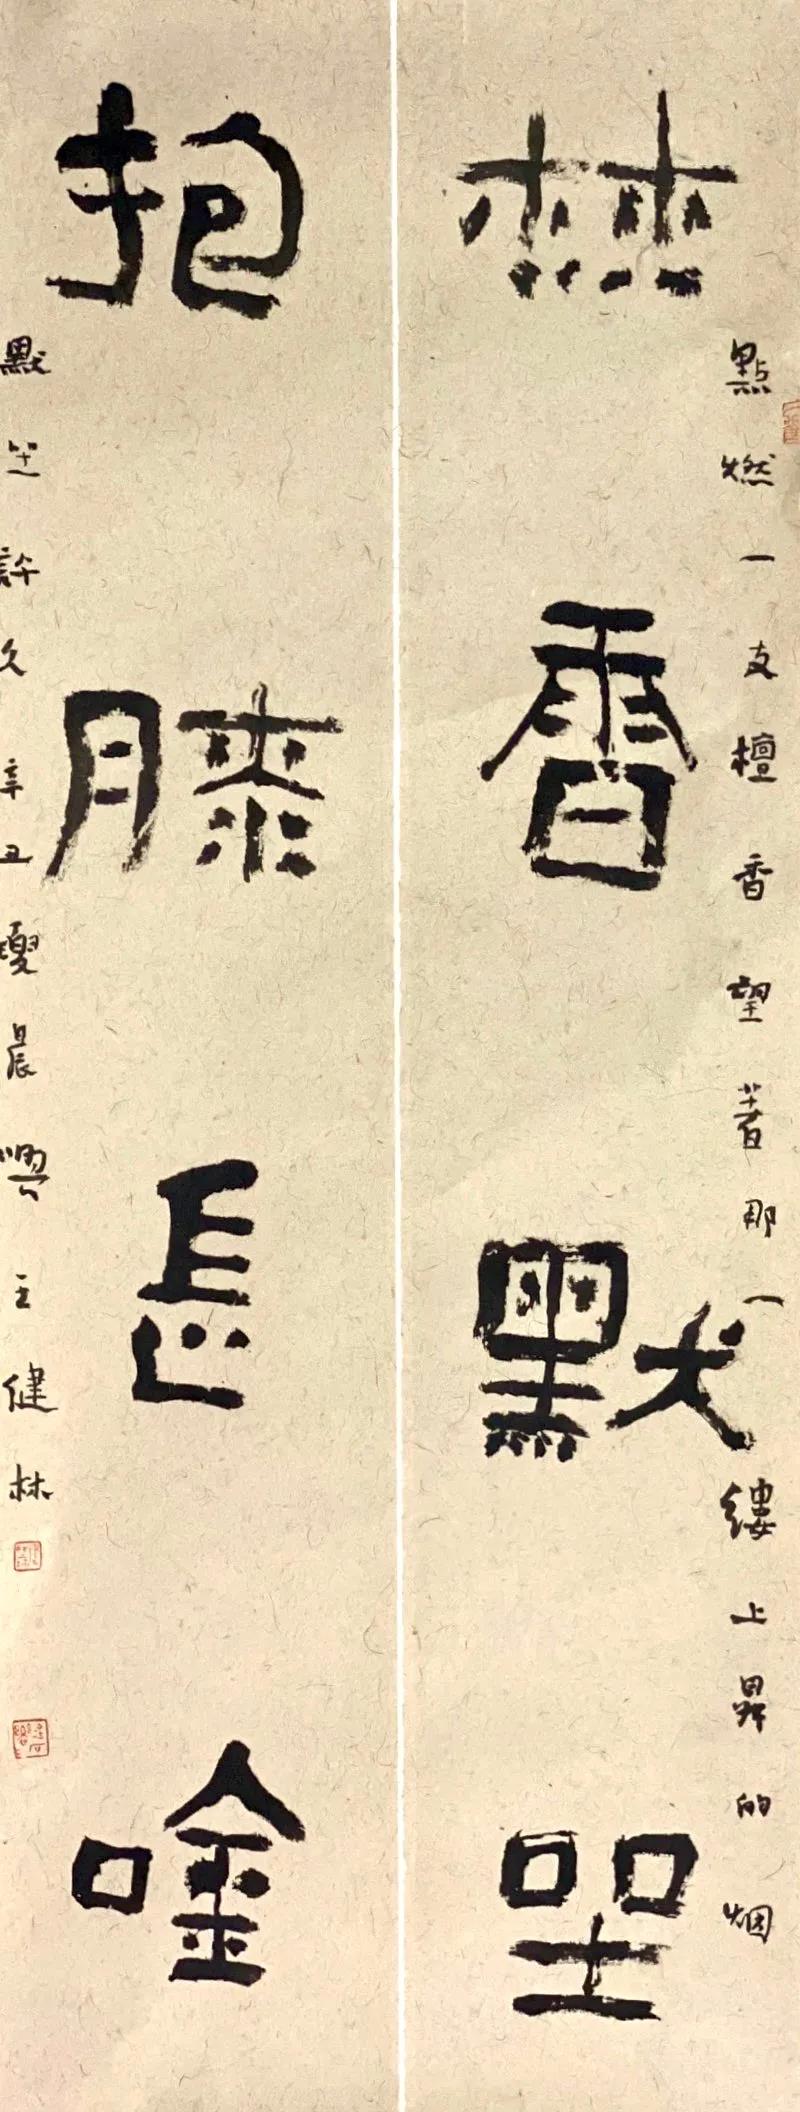 焚香默坐
點燃一支檀香望著那一縷上昇的烟
抱膝長唫
默坐許久辛丑夏晨興王健林